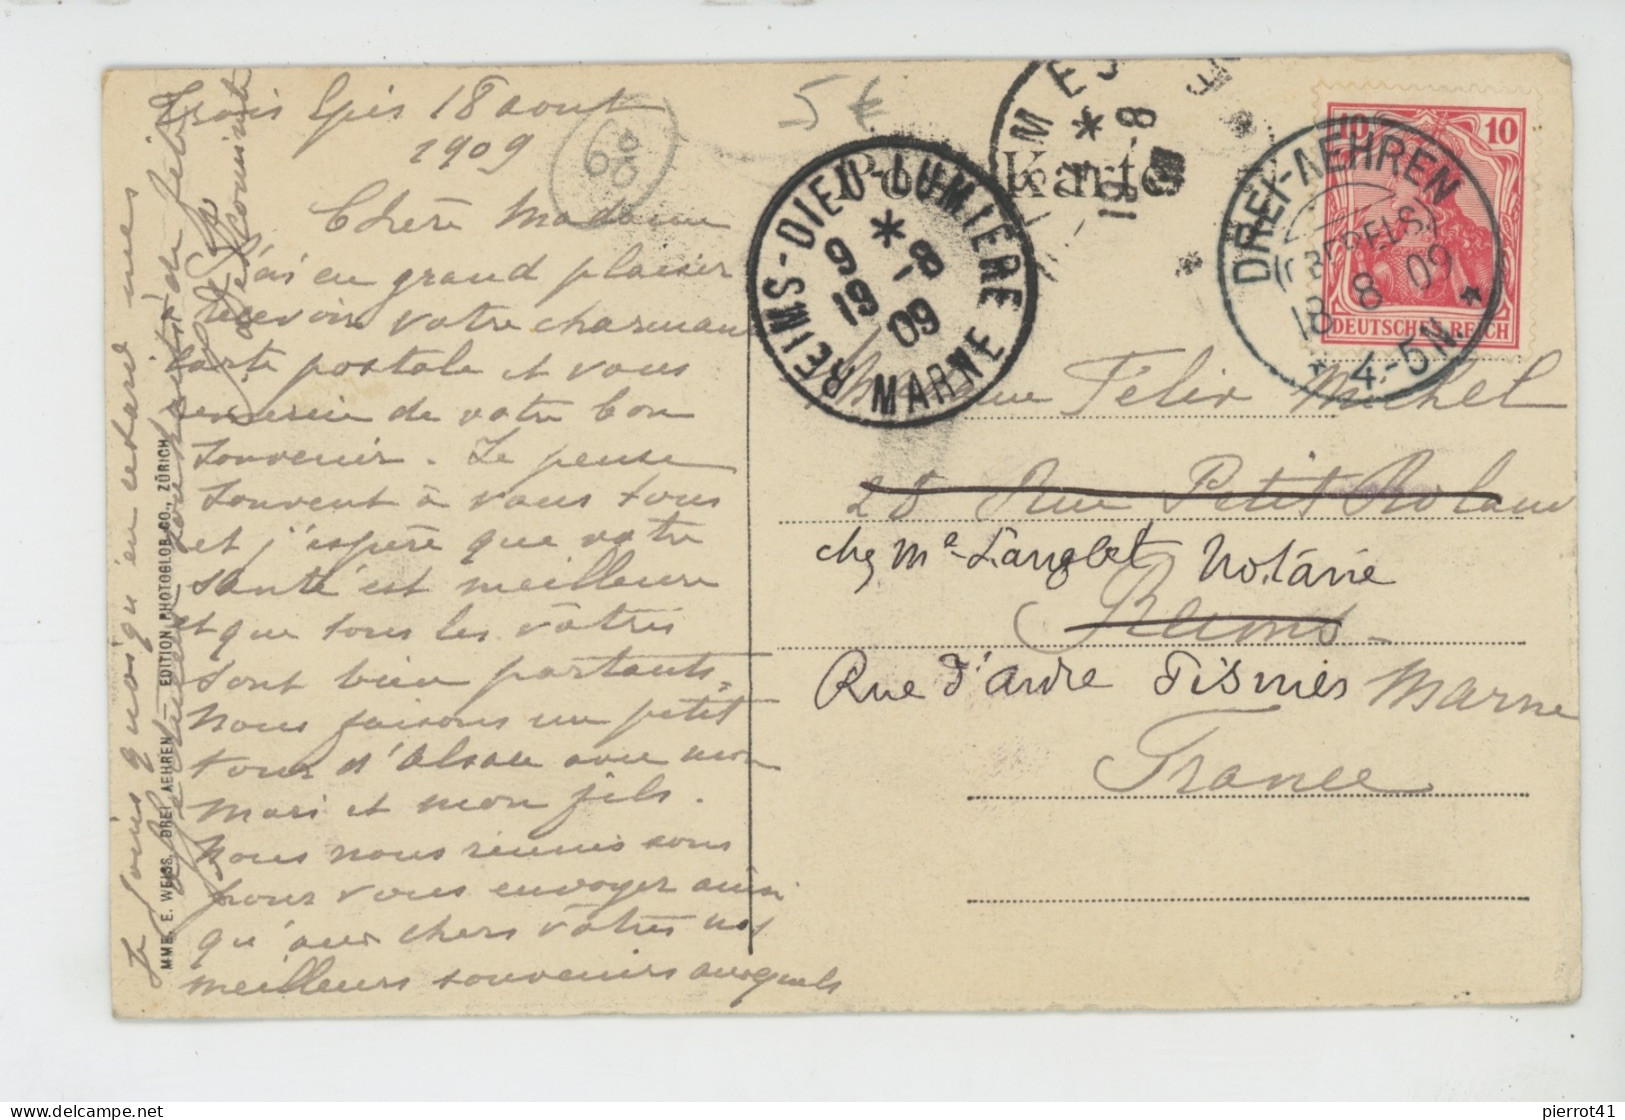 Trois Epis 18 aout
1909
Chère Madame
J'ai eu grand plaisir
recevoir votre charmante
carte postale et vous
remercie de votre bon
souvenir. Je pense
souvent à vous tous
et j'espère que votre
santé est meilleure
et que tous les vôtres
sont bien portants.
Nous faisons un petit
tour d'Alsace avec mon
mari et mon fils.
Nous nous réunissons
pour vous envoyer ainsi
qu'aux chers vôtres nos
meilleurs souvenirs auxquels
Je joins quoiqu'en retard mes
MME. E. WEISS, DREI AEHREN — EDITION PHOTOGLOB CO., ZÜRICH
68
5 €
Karte
REIMS-DIEU-LUMIERE
* 
9 -8
19 09
MARNE
DREI-AEHREN
18 8 09
* 4-5N. *
10 10
DEUTSCHES REICH
Madame Félix Michel
28 Rue Petit Roland
chez Me Langlet Notaire
Reims
Rue d'andre Fismes Marne
France
pierrot41